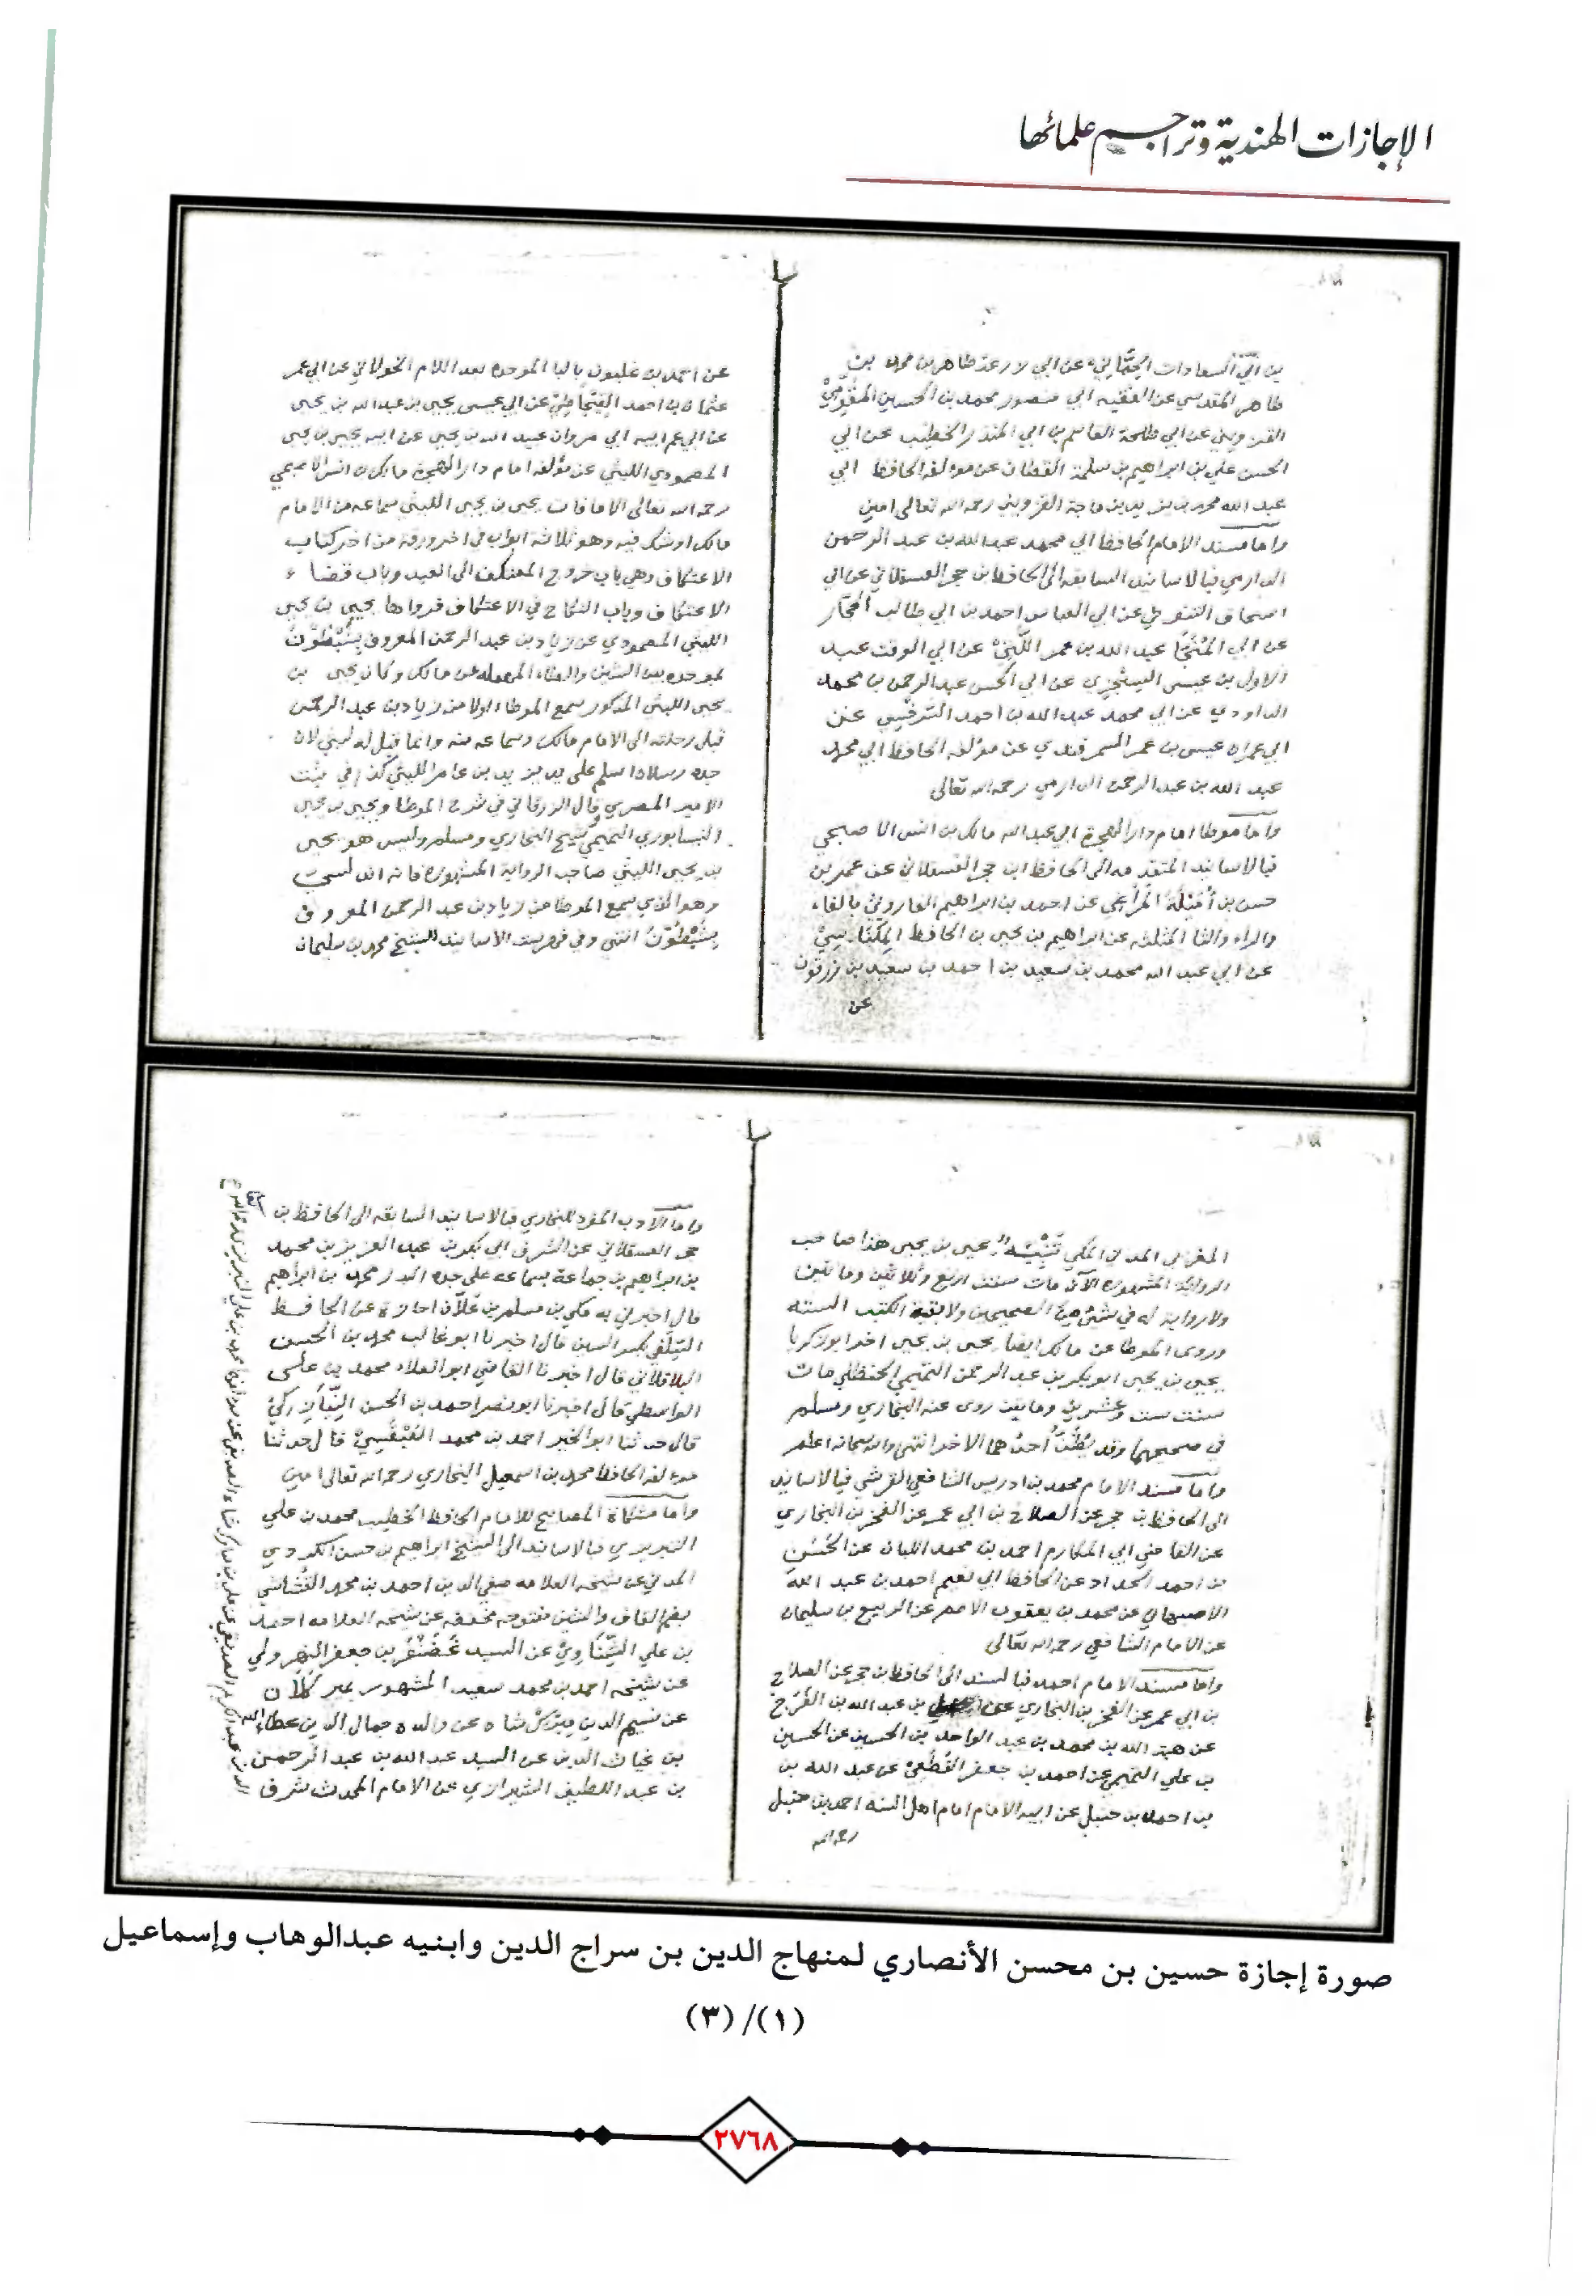 الإجازات الهندية وتراجم علمائها
بن ابي السعادات الحجاني عن ابي زرعة طاهر بن محمد بن
طاهر المقدسي عن الفقيه ابي منصور محمد بن الحسين المقومي
القزويني عن ابي طلحة القاسم بن ابي المنذر الخطيب عن ابي
الحسن علي بن ابراهيم بن سلمة القطان عن مؤلفه الحافظ ابي
عبد الله محمد بن يزيد بن ماجة القزويني رحمه الله تعالى امين
واما مسند الامام الحافظ ابي محمد عبد الله بن عبد الرحمن
الدارمي فبالاسانيد السابقه الى الحافظ بن حجر العسقلاني عن ابي
اسحاق التنوخي عن ابي العباس احمد بن ابي طالب الحجار
عن ابي المنجا عبد الله بن عمر اللتي عن ابي الوقت عبد
الاول بن عيسى السجزي عن ابي الحسن عبد الرحمن بن محمد
الداودي عن ابي محمد عبد الله بن احمد السرخسي عن
ابي عمران عيسى بن عمر السمرقندي عن مؤلفه الحافظ ابي محمد
عبد الله بن عبد الرحمن الدارمي رحمه الله تعالى
واما موطا امام دار الهجرة ابي عبد الله مالك بن انس الاصبحي
فبالاسانيد المتقدمه الى الحافظ ابن حجر العسقلاني عن عمر بن
حسن بن أميلة المراغي عن احمد بن ابراهيم الفاروثي بالفاء
والراء والثا المثلثه عن ابراهيم بن يحيى بن الحافظ المكناسي
عن ابي عبد الله محمد بن سعيد بن احمد بن سعيد بن زرقون
عن
عن احمد بن غلبون بالبا الموحده بعد اللام الخولاني عن ابي عمر
عثمان بن احمد القيجاطي عن ابي عيسى يحيى بن عبد الله بن يحيى
عن ابي عم ابيه ابي مروان عبيد الله بن يحيى عن ابيه يحيى بن يحيى
المصمودي الليثي عن مؤلفه امام دار الهجرة مالك بن انس الاصبحي
رحمه الله تعالى الا ما فات يحيى بن يحيى الليثي سماعه من الامام
مالك او شك فيه وهو ثلاثة ابواب في اخر ورقة من اخر كتاب
الاعتكاف وهي باب خروج المعتكف الى العيد وباب قضاء
الاعتكاف وباب النكاح في الاعتكاف فرواها يحيى بن يحيى
الليثي المصمودي عن زياد بن عبد الرحمن المعروف بشبطون
بموحده بين الشين والطاء المهمله عن مالك وكان يحيى بن
يحيى الليثي المذكور سمع الموطا اولا من زياد بن عبد الرحمن
قبل رحلته الى الامام مالك وسماعه منه وانما قيل له ليثي لان
جده وسلاس اسلم على يد يزيد بن عامر الليثي كذا في ثبت
الامير المصري وقال الزرقاني في شرح الموطا ويحيى بن يحيى
النيسابوري التميمي شيخ البخاري ومسلم وليس هو يحيى
بن يحيى الليثي صاحب الرواية المشهورة فانه اندلسي
وهو الذي سمع الموطا من زياد بن عبد الرحمن المعروف
بشبطون انتهى وفي فهرست الاسانيد للشيخ محمد بن سليمان
المغربي المدني المكي تنبيه يحيى بن يحيى هذا صاحب
الرواية المشهوره الآن مات سنة اربع وثلاثين ومائتين
ولا رواية له في شئ من الصحيحين ولا بقية الكتب السته
وروى الموطا عن مالك ايضا يحيى بن يحيى اخر ابو زكريا
يحيى بن يحيى ابو بكر بن عبد الرحمن التميمي الحنظلي مات
سنة ست وعشرين ومايتين روى عنه البخاري ومسلم
في صحيحهما وقد يظن أحدهما الاخر انتهى والله سبحانه اعلم
واما مسند الامام محمد بن ادريس الشافعي القرشي فبالاسانيد
الى الحافظ بن حجر عن الصلاح بن ابي عمر عن الفخر بن البخاري
عن القاضي ابي المكارم احمد بن محمد اللبان عن الحسن
بن احمد الحداد عن الحافظ ابي نعيم احمد بن عبد الله
الاصبهاني عن محمد بن يعقوب الاصم عن الربيع بن سليمان
عن الامام الشافعي رحمه الله تعالى
واما مسند الامام احمد فبالسند الى الحافظ بن حجر عن الصلاح
بن ابي عمر عن الفخر بن البخاري عن بن عبد الله بن الفرج
عن هبة الله بن محمد بن عبد الواحد بن الحسين عن الحسين
بن علي التميمي عن احمد بن جعفر القطيعي عن عبد الله بن
بن احمد بن حنبل عن ابيه الامام امام اهل السنة احمد بن حنبل
رحمه الله
واما الأدب المفرد للبخاري فبالاسانيد السابقه الى الحافظ بن
حجر العسقلاني عن الشرف ابي بكر بن عبد العزيز بن محمد
بن ابراهيم بن جماعة بسماعه على جده البدر محمد بن ابراهيم
قال اخبرني به مكي بن مسلم بن علان اجازة عن الحافظ
السلفي بكسر السين قال اخبرنا ابو غالب محمد بن الحسن
الباقلاني قال اخبرنا القاضي ابو العلاء محمد بن علي
الواسطي قال اخبرنا ابو نصر احمد بن الحسن النيازكي
قال حدثنا ابو الخير احمد بن محمد العبقسي قال حدثنا
مؤلفه الحافظ محمد بن اسمعيل البخاري رحمه الله تعالى امين
واما مشكاة المصابيح للامام الحافظ الخطيب محمد بن علي
التبريزي فبالاسانيد الى الشيخ ابراهيم بن حسن الكردي
المدني عن شيخه العلامه صفي الدين احمد بن محمد القشاشي
بضم القاف والشين مفتوحه مخففه عن شيخه العلامه احمد
بن علي الشناوي عن السيد غضنفر بن جعفر النهروالي
عن شيخه احمد بن محمد سعيد المشهور بمير كلان
عن نسيم الدين ميركشاه عن والده جمال الدين عطاء الله
بن غياث الدين عن السيد عبد الله بن عبد الرحمن
بن عبد اللطيف الشيرازي عن الامام المحدث شرف
صورة إجازة حسين بن محسن الأنصاري لمنهاج الدين بن سراج الدين وابنيه عبدالوهاب وإسماعيل
(١)/(٣)
٢٧٦٨